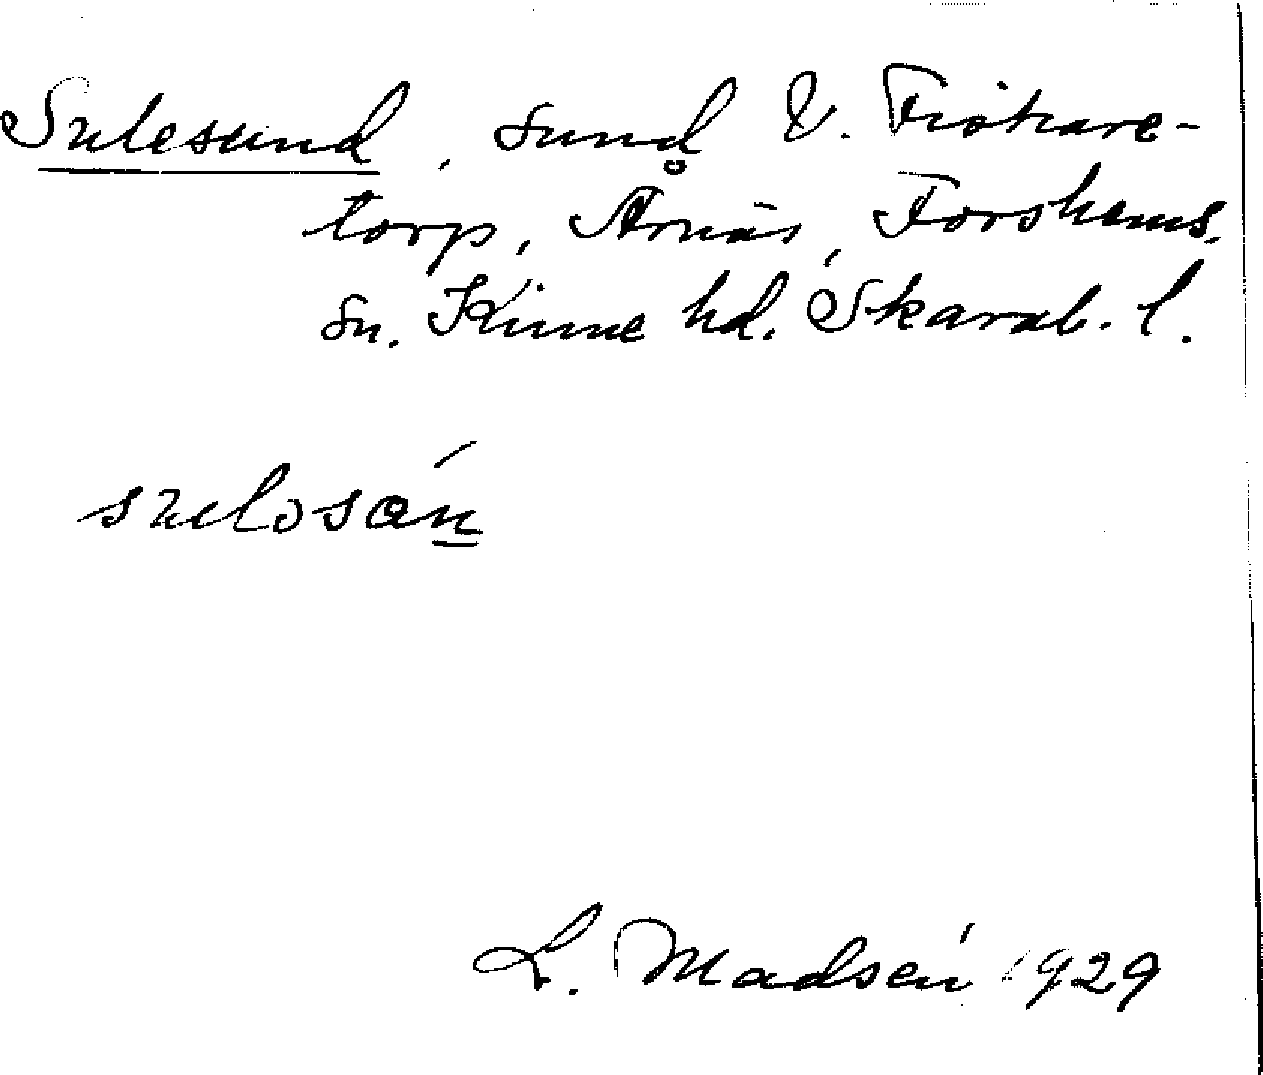 Sulesund, sund V. Fiskare-
torp, Årnäs, Forshems
sn. Kinne hd. Skarab. l.
L. Madsén 1929